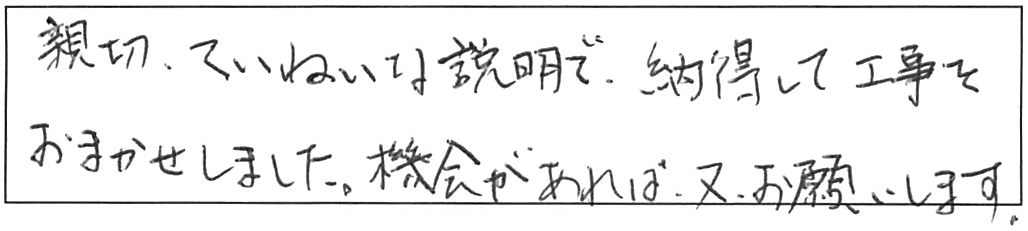 親切、ていねいな説明で、納得して工事を
おまかせしました。機会があれば、又、お願いします。